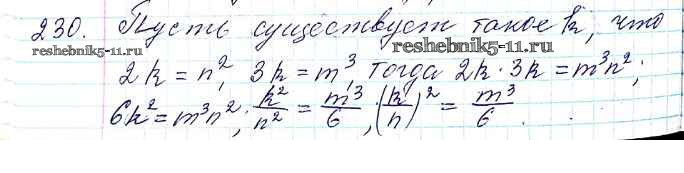 230. Пусть существует такое k, что
reshebnik5-11.ru reshebnik5-11.ru
2k = n², 3k = m³, тогда 2k · 3k = m³n²;
6k² = m³n²; k²/n² = m³/6, (k/n)² = m³/6